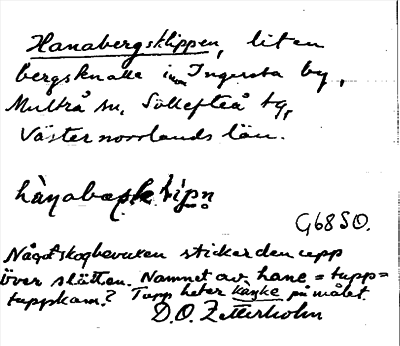 Hanabergsklippen, liten
bergsknalle i Ingersta by,
Multrå sn, Sollefteå tg,
Västernorrlands län.
G68SO.
Något skogbevuxen sticker den upp
över slätten. Namnet av hane = tupp =
tuppkam? Tupp heter på målet.
D.O. Zetterholm